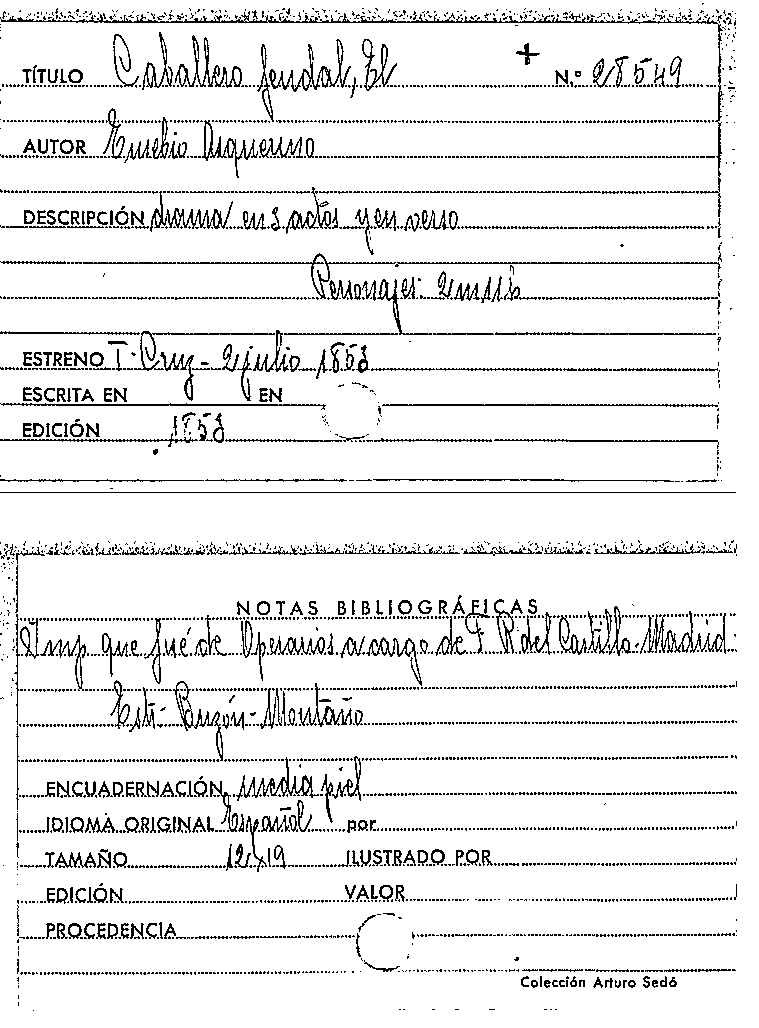 TÍTULO Caballero feudal, El + N.º 28549
AUTOR Eusebio Asquerino
DESCRIPCIÓN drama en 3 actos y en verso
Personajes: 2m11h
ESTRENO T. Cruz - 2 julio 1853
ESCRITA EN EN
EDICIÓN 1853
NOTAS BIBLIOGRÁFICAS
Imp que fué de Operarios a cargo de F. R del Castillo. Madrid.
Estr- Buzón - Montaño
ENCUADERNACIÓN media piel
IDIOMA ORIGINAL Español por
TAMAÑO 12x19 ILUSTRADO POR
EDICIÓN VALOR
PROCEDENCIA
Colección Arturo Sedó